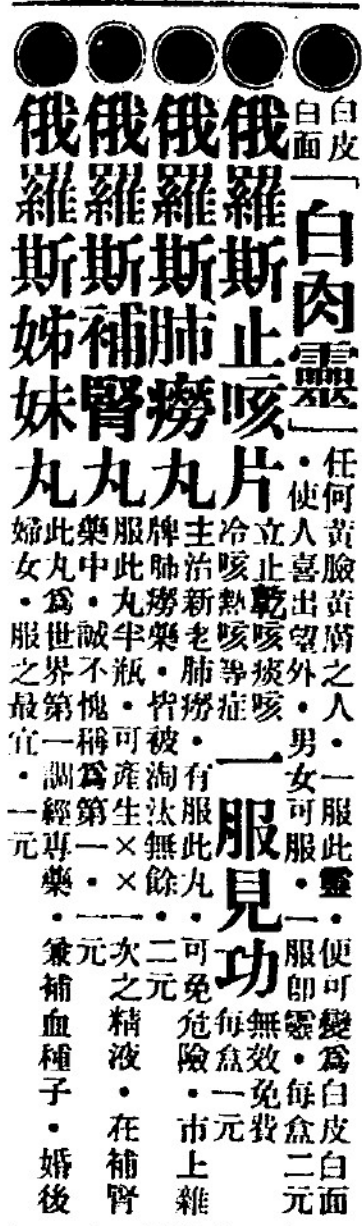 白皮
白面
「白肉靈」
任何黃臉黃膚之人・一服此靈・便可變爲白皮白面
・使人喜出望外・男女可服・一服即靈・每盒二元
俄羅斯止咳片
立止乾咳痰咳
冷咳熱咳等症
一服見功
無效免費
每盒一元
俄羅斯肺癆丸
主治新老肺癆・有服此丸・可免危險・市上雜
牌肺癆藥・皆被淘汰無餘・二元
俄羅斯補腎丸
服此丸半瓶・可產生××一次之精液・在補腎
藥中・誠不愧稱爲第一・一元
俄羅斯姊妹丸
此丸爲世界第一調經專藥・兼補血種子・婚後
婦女・服之最宜・一元